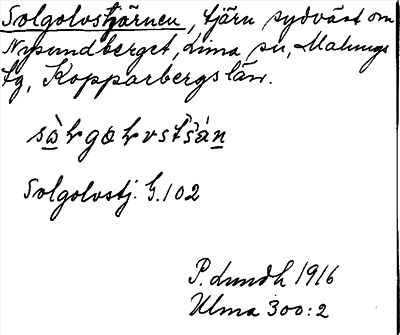 Solgolvstjärnen, tjärn sydväst om
Nysundberget, Lima sn, Malungs
tg, Kopparbergs län.
Solgolvstj. G.102
P. Lundh 1916
Ulma 300:2